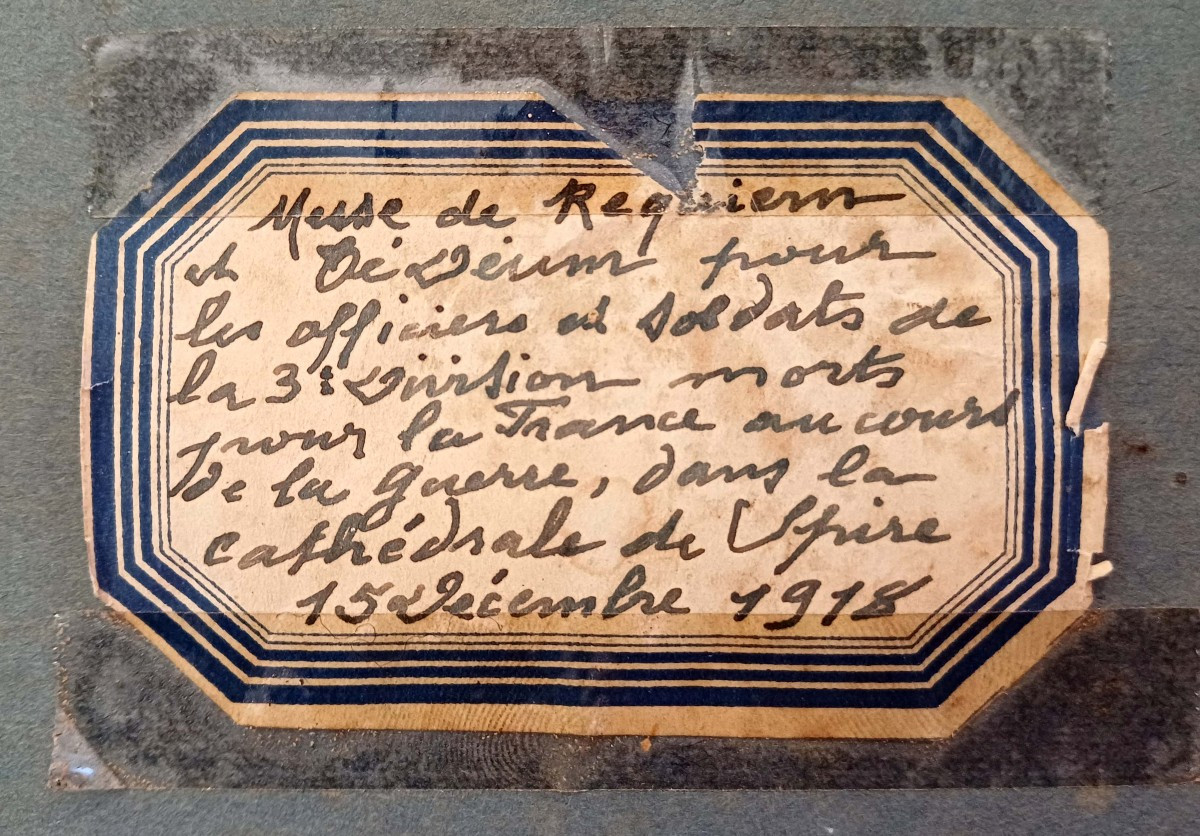 Messe de Requiem
et Té Déum pour
les officiers et soldats de
la 3e Division morts
pour la France au cours
de la guerre, dans la
cathédrale de Spire
15 Décembre 1918